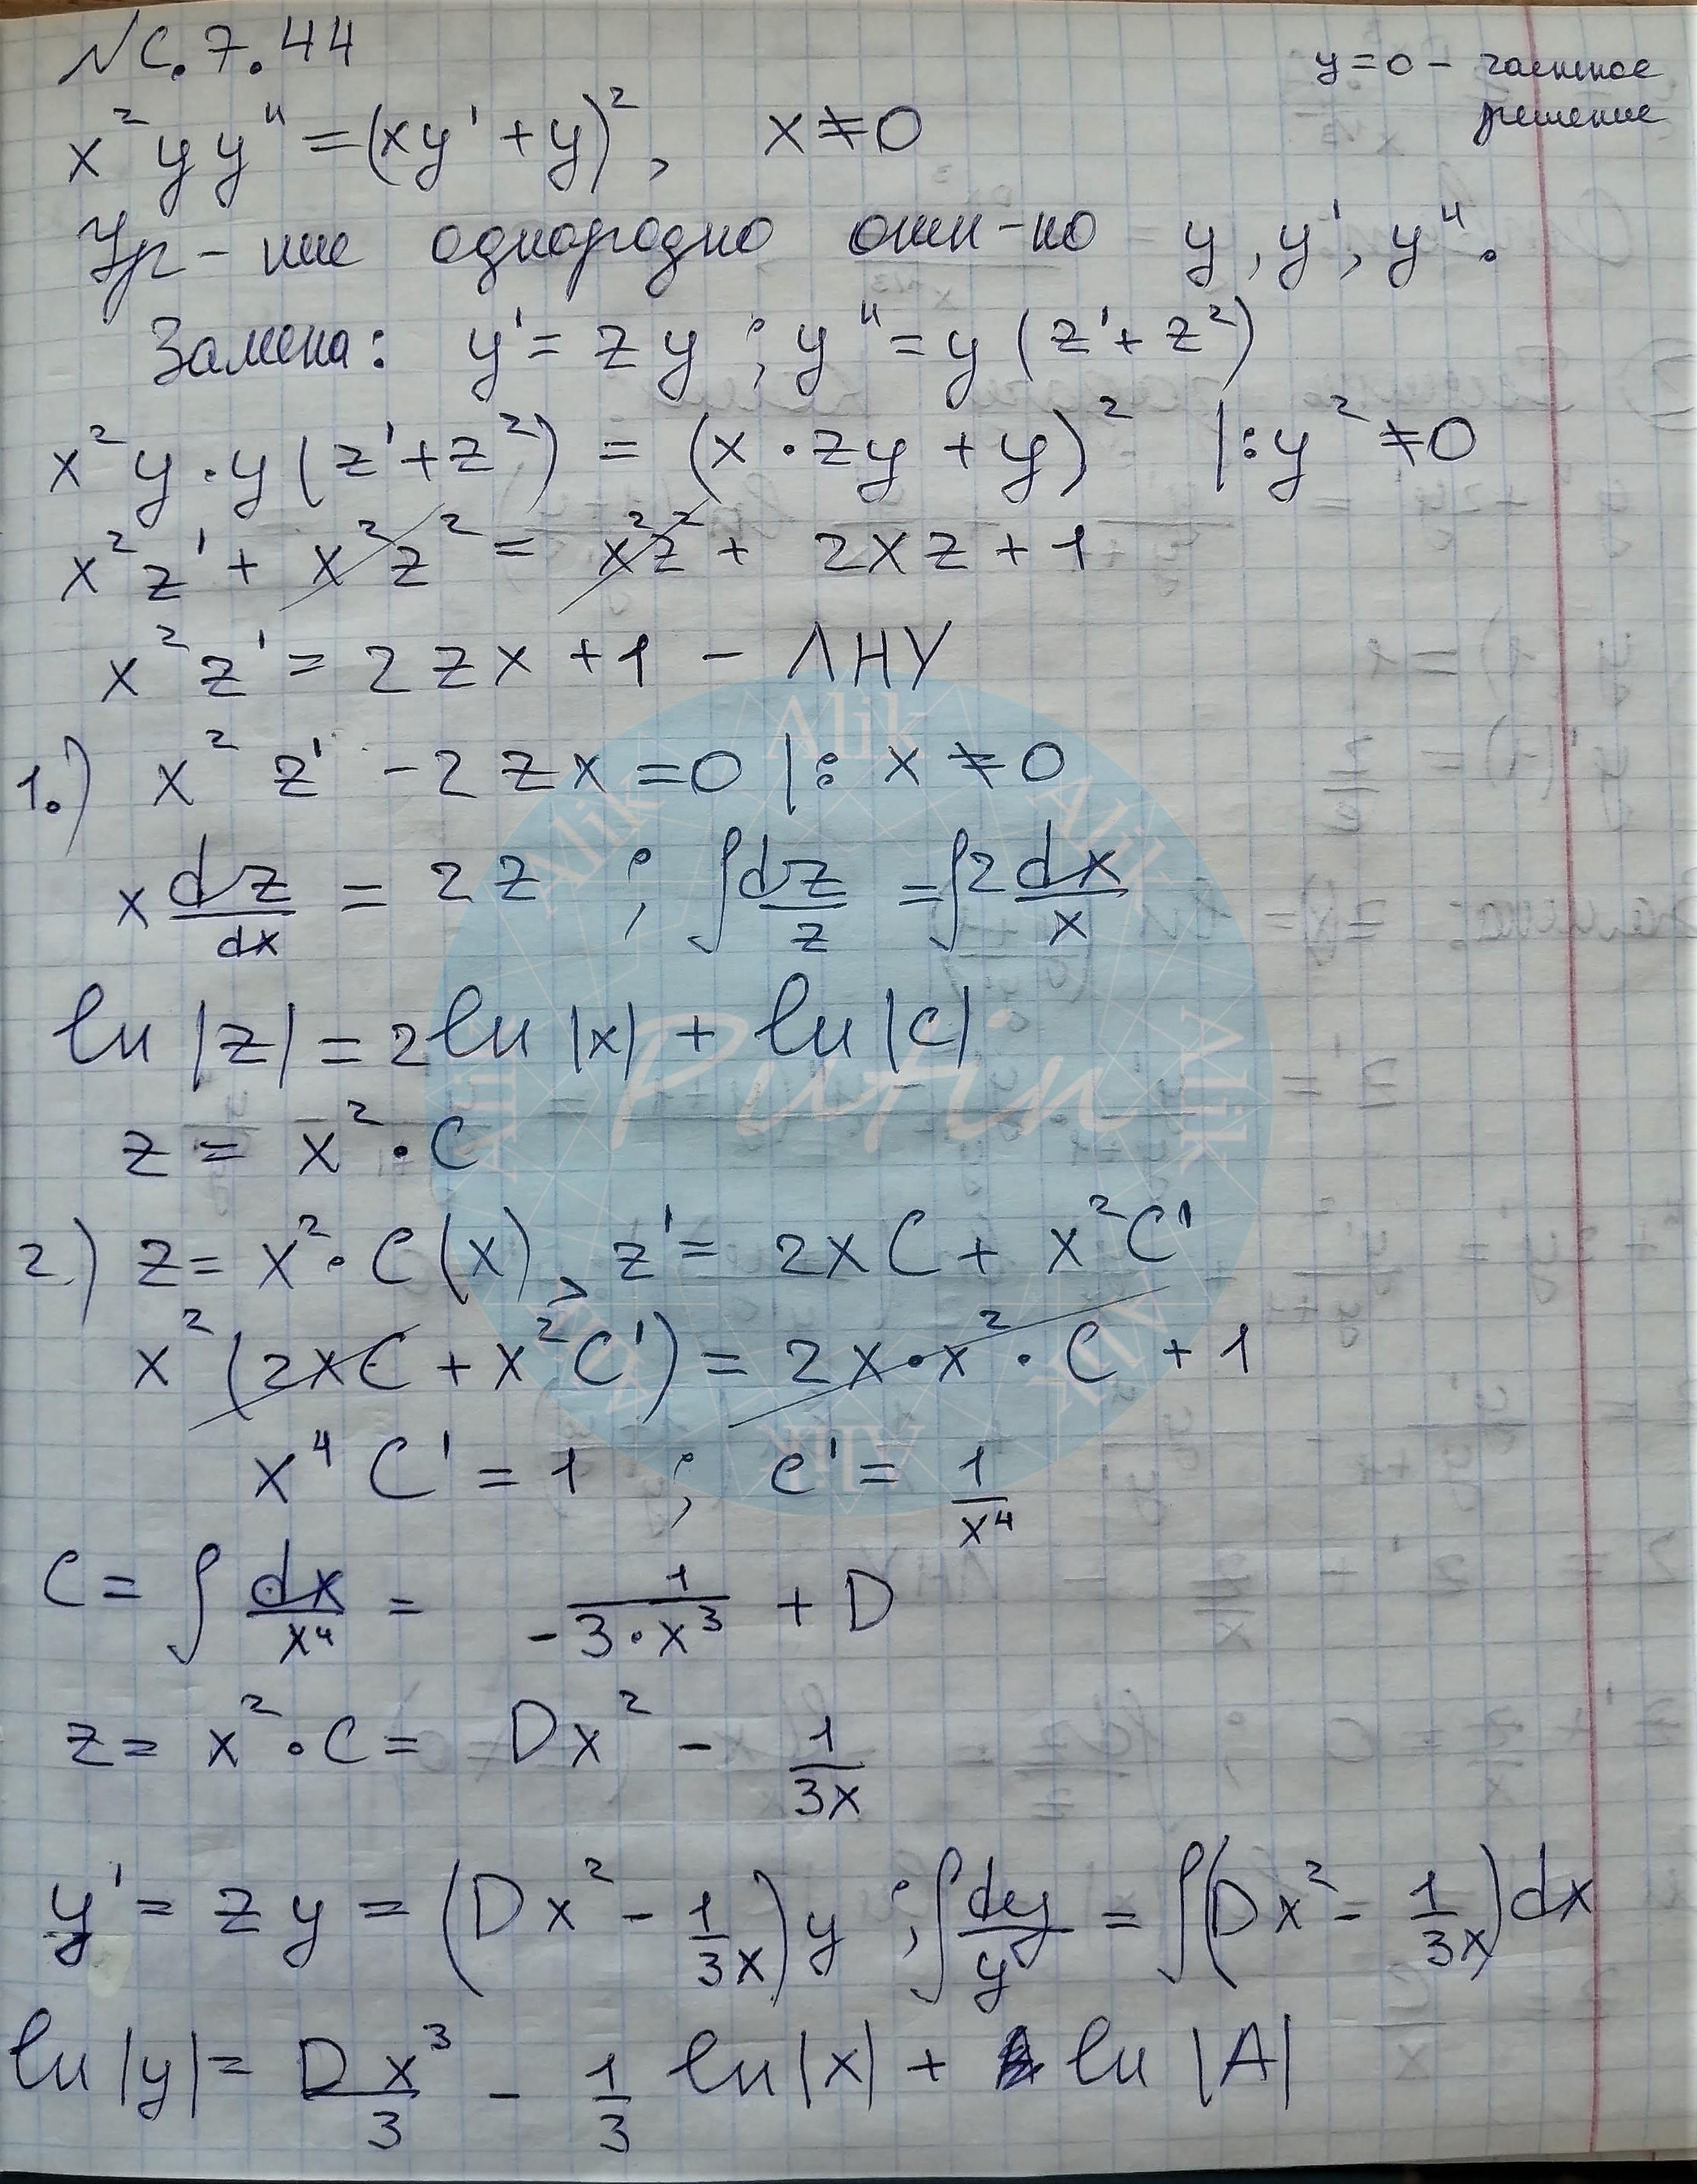 № С.7.44
y=0 - частное
решение
x² y y'' = (xy' + y)², x ≠ 0
Ур-ние однородно отн-но y, y', y''.
Замена: y' = zy ; y'' = y (z' + z²)
x² y · y (z' + z²) = (x · zy + y)² |: y² ≠ 0
x² z' + x² z² = x² z² + 2xz + 1
x² z' = 2zx + 1 - ЛНУ
1.) x² z' - 2zx = 0 |: x ≠ 0
x dz/dx = 2z ; ∫ dz/z = ∫ 2dx/x
ln |z| = 2 ln |x| + ln |C|
z = x² · C
2.) z = x² · C(x), z' = 2xC + x² C'
x² (2xC + x² C') = 2x · x² · C + 1
x⁴ C' = 1 ; C' = 1/x⁴
C = ∫ dx/x⁴ = - 1/(3 · x³) + D
z = x² · C = Dx² - 1/(3x)
y' = zy = (Dx² - 1/(3x)) y ; ∫ dy/y = ∫ (Dx² - 1/(3x)) dx
ln |y| = D x³/3 - 1/3 ln |x| + ln |A|
Alik
Alik
Alik
Alik
Alik
Alik
Alik
Alik
Putin